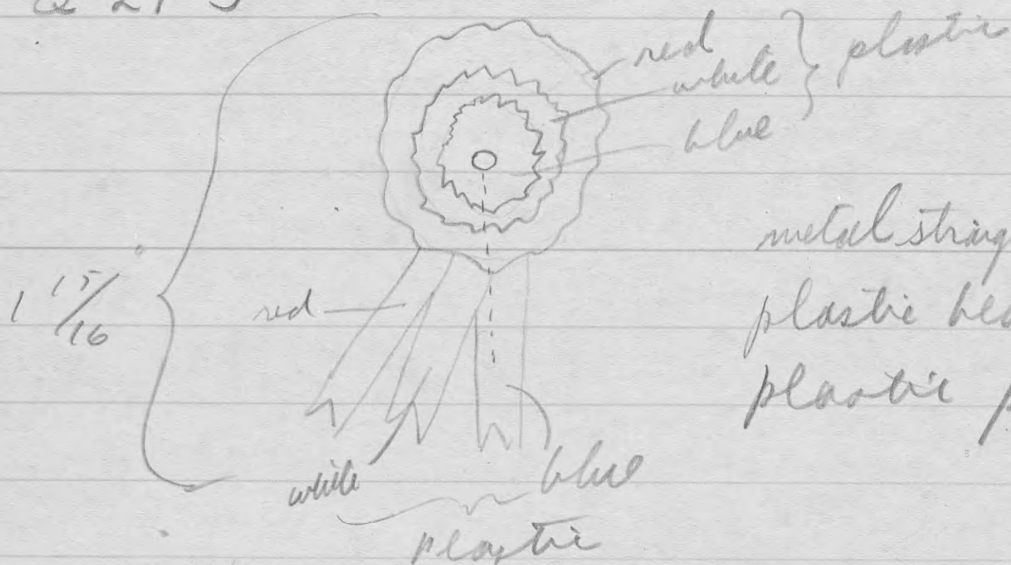 red
white
blue
plastic
metal
plastic
plastic
1 15/16
red
white
blue
plastic